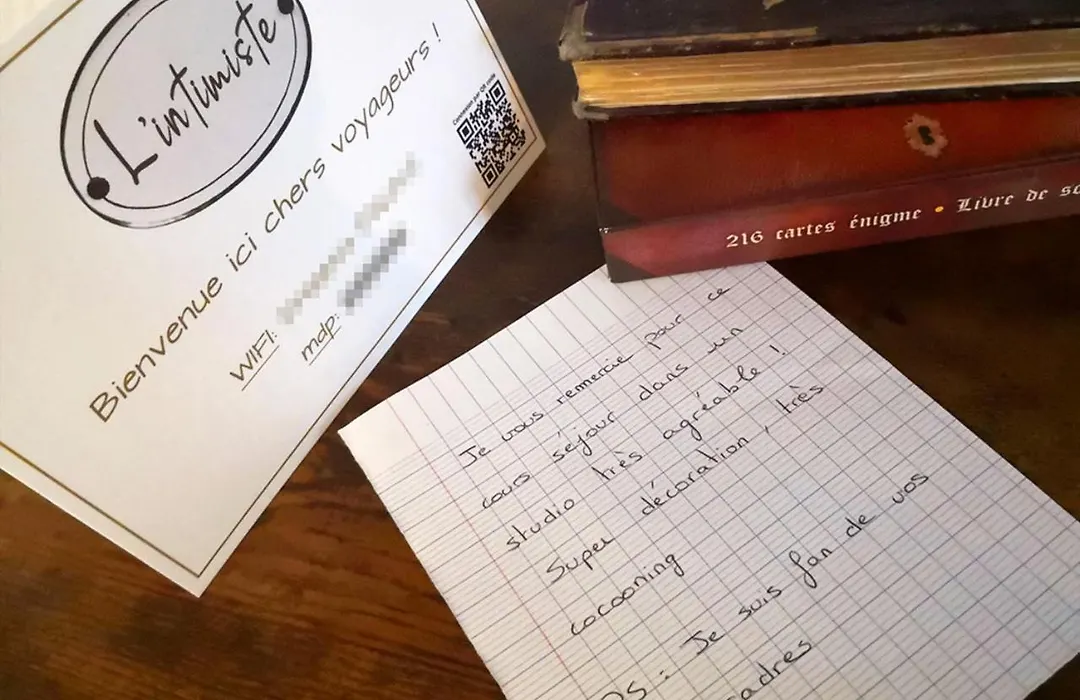 L'intimiste
Bienvenue ici chers voyageurs !
WIFI:
mdp:
Connexion par QR code
216 cartes énigme • Livre de
Je vous remercie pour ce
cours séjour dans un
studio très agréable !
Super décoration, très
cocooning
PS : Je suis fan de vos
cadres